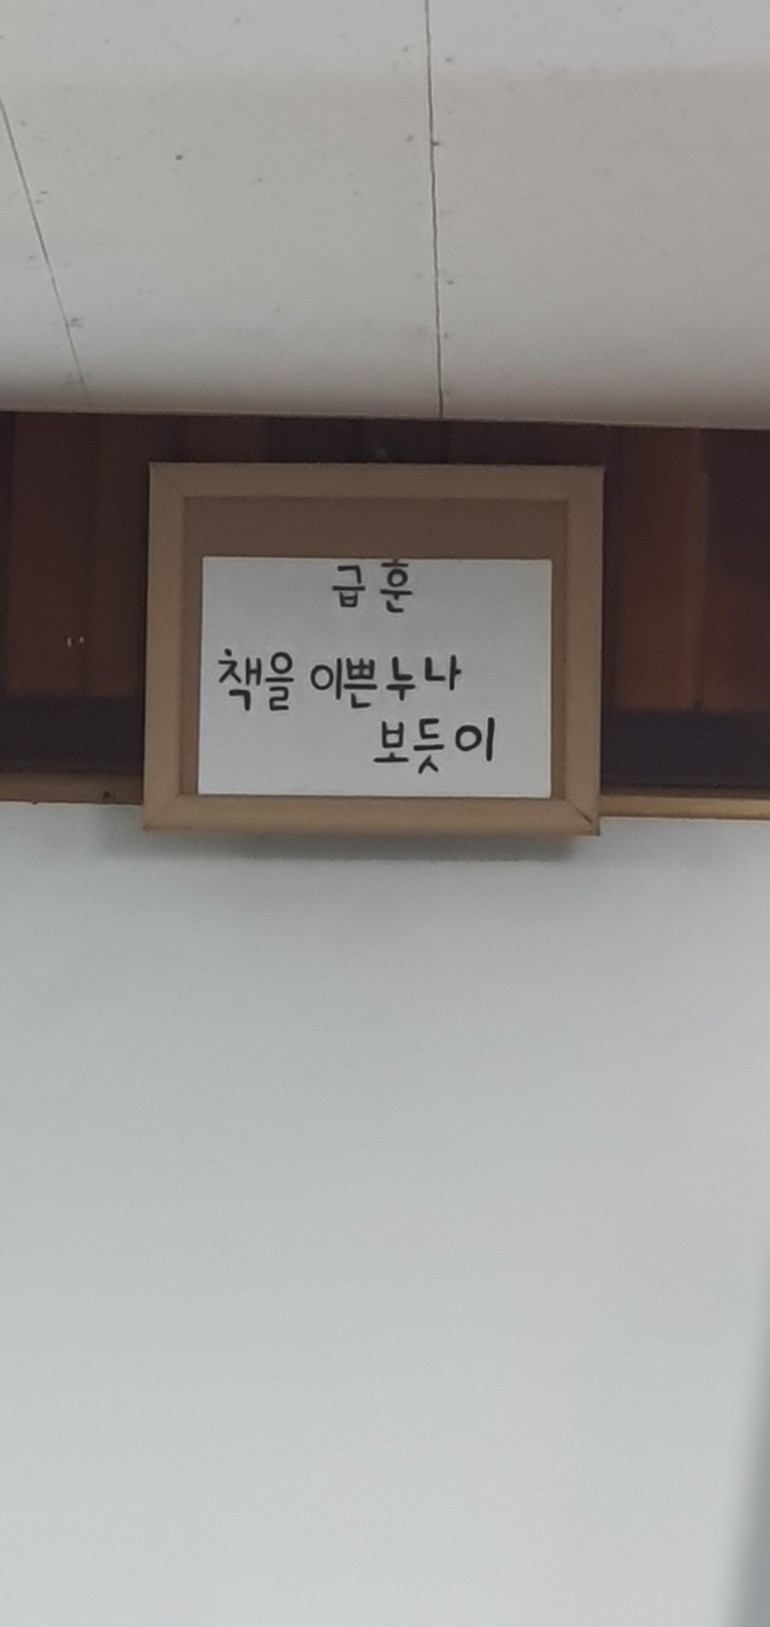 급훈
책을 이쁜누나
보듯이